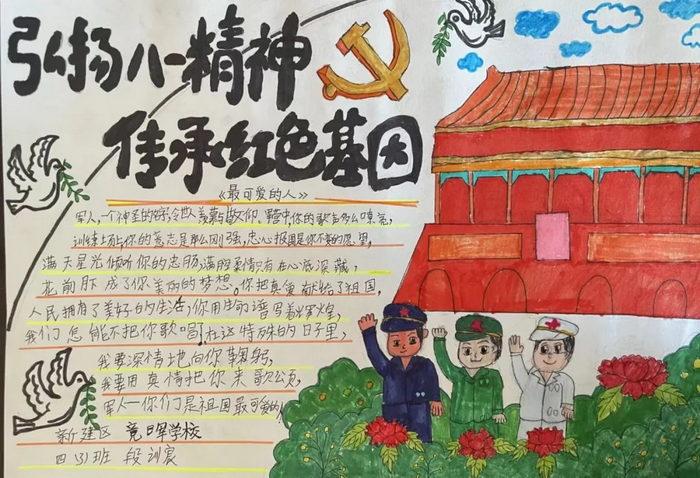 弘扬八一精神
传承红色基因
《最可爱的人》
军人,一个神圣的称令世人羡慕与敬仰,军营中,你的歌声多么嘹亮,
训练场上你的意志是那么刚强,忠心报国是你不变的愿望,
满天星光倾听你的忠肠,满腔柔情只有在心底深藏,
花前月下成了你美丽的梦想。你把真爱献给了祖国,
人民拥有了美好的生活,你用生命谱写着辉煌,
我们怎能不把你歌唱,在这特殊的日子里,
我要深情地向你鞠躬,
我要用真情把你来歌颂,
军人一你们是祖国最可爱的人
新建区 竞晖学校
四(3)班 段训宸